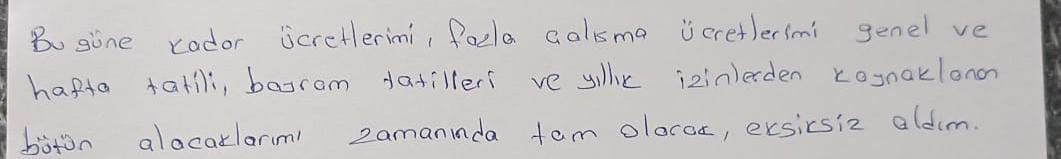 Bu güne kadar ücretlerimi, fazla çalışma ücretlerimi genel ve
hafta tatili, bayram tatilleri ve yıllık izinlerden kaynaklanan
bütün alacaklarımı zamanında tam olarak, eksiksiz aldım.